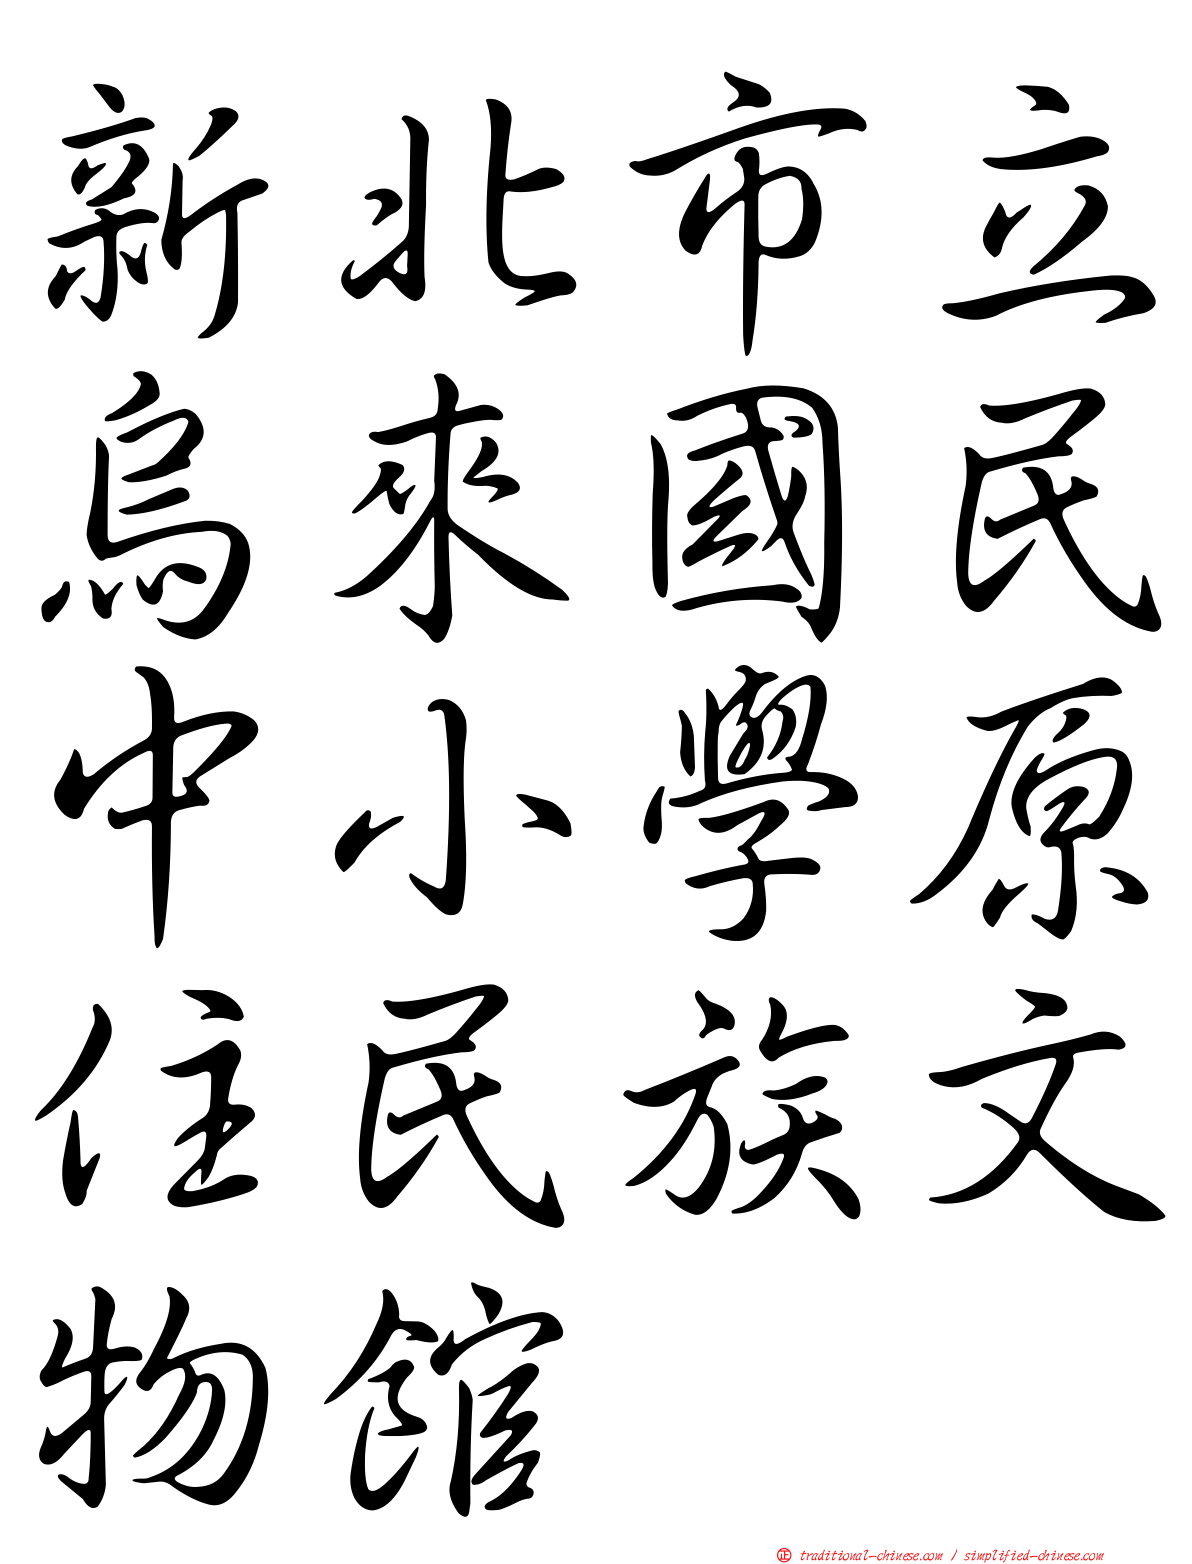 新北市立
烏來國民
中小學原
住民族文
物館
正 traditional-chinese.com / simplified-chinese.com